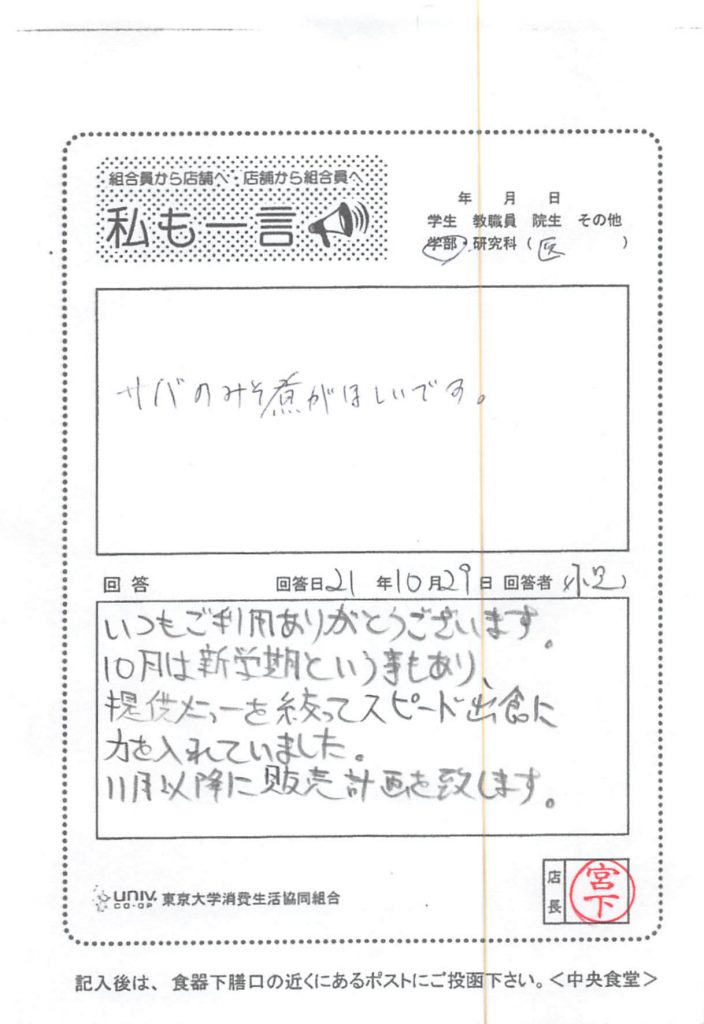 組合員から店舗へ・店舗から組合員へ
私も一言
年 月 日
学生 教職員 院生 その他
学部・研究科(医)
サバのみそ煮がほしいです。
回答 回答日21年10月29日 回答者( )
いつもご利用ありがとうございます。
10月は新学期という事もあり、
提供メニューを絞ってスピード出食に
力を入れていました。
11月以降に販売計画を致します。
UNIV. CO-OP 東京大学消費生活協同組合
店長 宮下
記入後は、食器下膳口の近くにあるポストにご投函下さい。<中央食堂>